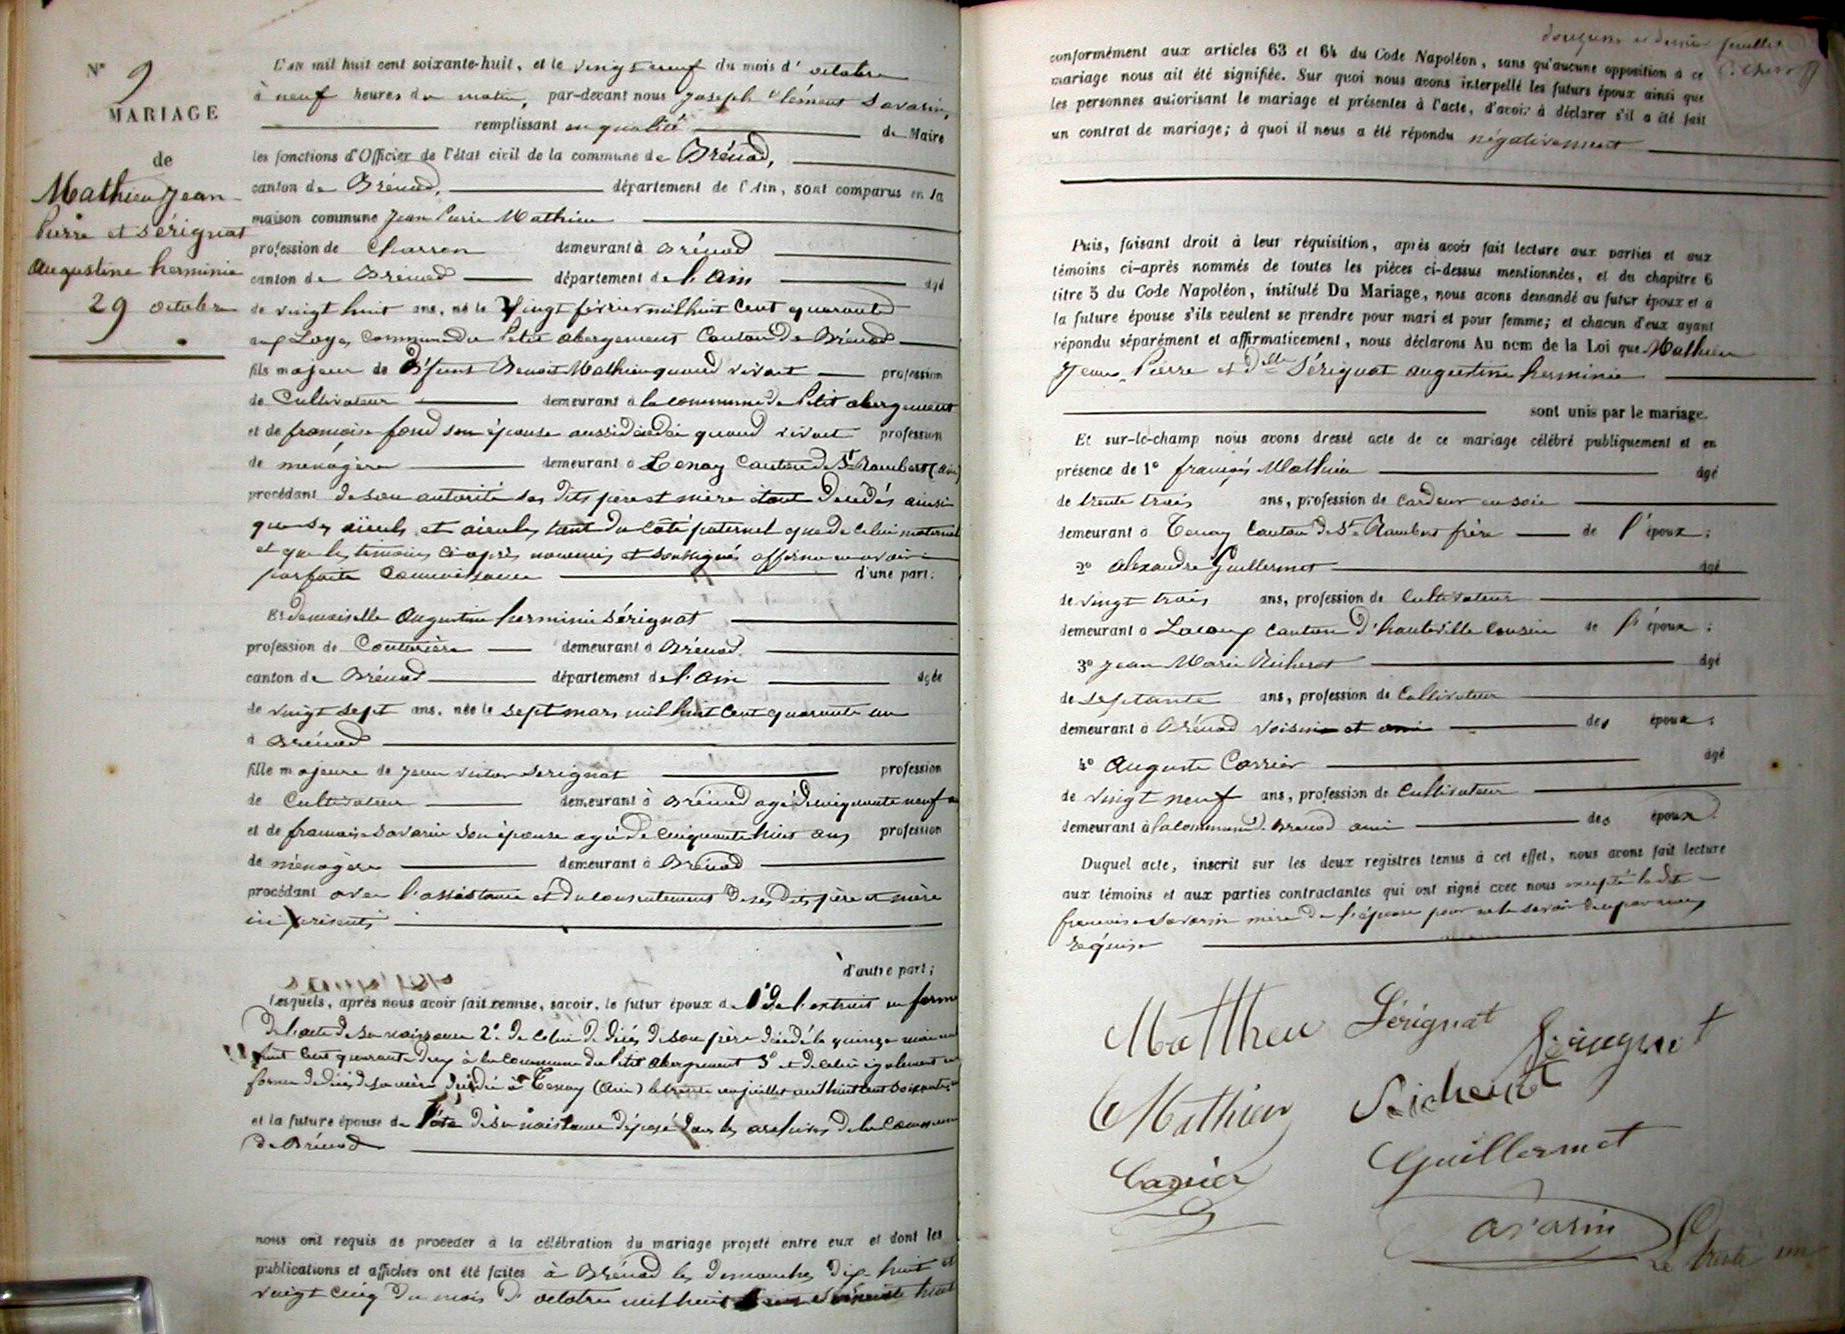 N° 9
MARIAGE
de
Mathieu Jean
Pierre et Sérignat
augustine herminie
29 octobre
L'an mil huit cent soixante-huit, et le vingt neuf du mois d'octobre
à neuf heures du matin, par-devant nous Joseph Clément Savarin,
remplissant en qualité de Maire
les fonctions d'Officier de l'état civil de la commune de Brénod,
canton de Brénod, département de l'Ain, sont comparus en la
maison commune Jean Pierre Mathieu
profession de Charron demeurant à Brénod
canton de Brénod département de l'Ain âgé
de vingt huit ans, né le Vingt février mil huit cent quarante
aux Loyes commune du Petit abergement Canton de Brénod
fils majeur de Défunt Benoit Mathieu quand vivait profession
de Cultivateur demeurant à la commune de Petit abergement
et de françoise fond son épouse aussi décédée quand vivait profession
de menagère demeurant à Tenay Canton de St Rambert (ain)
procédant de son autorité ses dits père et mère étant décédés ainsi
que ses aïeuls et aieules tant du côté paternel que de celui maternel
et que les témoins ci après nommés et soussignés affirme en avoir
parfaite connaissance d'une part;
Et demoiselle Augustine herminie Sérignat
profession de Couturière demeurant à Brénod
canton de Brénod département de l'Ain âgée
de vingt sept ans, née le sept mars mil huit cent quarante un
à Brénod
fille majeure de Jean victor Serignat profession
de Cultivateur demeurant à Brénod agé de cinquante neuf
et de françoise Savarin son épouse agée de cinquante huit ans profession
de ménagère demeurant à Brénod
procédant avec l'assistance et du consentement de ses dits père et mère
ici présents
d'autre part;
Lesquels, après nous avoir fait remise, savoir, le futur époux de 1° de l'extrait en forme
de l'acte de sa naissance 2° de celui de décès de son père décédé le quinze mai mil
huit cent quarante deux à la commune du Petit abergement 3° et de celui également en
forme de décès de sa mère décédée à Tenay (Ain) le trente un juillet mil huit cent soixante
et la future épouse de l'acte de sa naissance déposé dans les archives de la Commune
de Brénod
nous ont requis de procéder à la célébration du mariage projeté entre eux et dont les
publications et affiches ont été faites à Brénod les dimanches dix huit et
vingt cinq du mois d'octobre mil huit cent soixante huit
douzième et dernier feuillet
conformément aux articles 63 et 64 du Code Napoléon, sans qu'aucune opposition à ce
mariage nous ait été signifiée. Sur quoi nous avons interpellé les futurs époux ainsi que
les personnes autorisant le mariage et présentes à l'acte, d'avoir à déclarer s'il a été fait
un contrat de mariage; à quoi il nous a été répondu négativement
Puis, faisant droit à leur réquisition, après avoir fait lecture aux parties et aux
témoins ci-après nommés de toutes les pièces ci-dessus mentionnées, et du chapitre 6
titre 5 du Code Napoléon, intitulé Du Mariage, nous avons demandé au futur époux et à
la future épouse s'ils veulent se prendre pour mari et pour femme; et chacun d'eux ayant
répondu séparément et affirmativement, nous déclarons Au nom de la Loi que Mathieu
Jean Pierre et Dlle Sérignat augustine herminie
sont unis par le mariage.
Et sur-le-champ nous avons dressé acte de ce mariage célébré publiquement et en
présence de 1° françois Mathieu âgé
de trente trois ans, profession de Cardeur en soie
demeurant à Tenay Canton de St Rambert frère de l'époux;
2° alexandre Guillermet âgé
de vingt trois ans, profession de Cultivateur
demeurant à Lacoux canton d'hauteville cousin de l'époux;
3° Jean Marie Richerot âgé
de septante ans, profession de Cultivateur
demeurant à Brénod Voisin et ami des époux;
4° Auguste Carrier âgé
de vingt neuf ans, profession de Cultivateur
demeurant à la commune de Brénod ami des époux.
Duquel acte, inscrit sur les deux registres tenus à cet effet, nous avons fait lecture
aux témoins et aux parties contractantes qui ont signé avec nous excepté ladite
françoise Savarin mère de l'épouse pour ne le savoir de ce par nous
requise
Matthieu Sérignat
Sérignat
Mathieu Richerot
Carrier Guillermet
Savarin